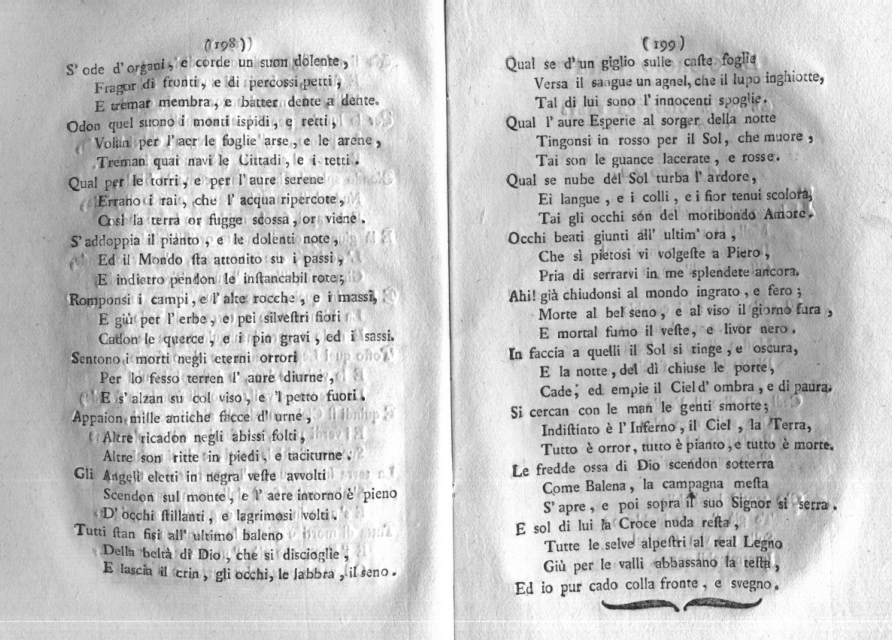 (198)
S' ode d' organi, e corde un suon dolente,
Fragor di fronti, e di percossi petti,
E tremar membra, e batter dente a dente.
Odon quel suono i monti ispidi, e retti,
Volan per l' aer le foglie arse, e le arene,
Treman quai navi le Cittadi, e i tetti.
Qual per le torri, e per l' aure serene
Errano i rai, che l' acqua ripercote,
Così la terra or fugge scossa, or viene.
S' addoppia il pianto, e le dolenti note,
Ed il Mondo ſta attonito su i passi,
E indietro pendon le inſtancabil rote;
Romponsi i campi, e l' alte rocche, e i massi,
E giù per l' erbe, e pei silveſtri fiori
Caſton le querce, e i pin gravi, ed i sassi.
Sentono i morti negli eterni orrori
Per lo fesso terren l' aure diurne,
E s' alzan su col viso, e 'l petto fuori.
Appaion mille antiche facce d' urne,
Altre ricadon negli abissi folti,
Altre son ritte in piedi, e taciturne.
Gli Angeli eletti in negra veſte avvolti
Scendon sul monte, e l' aere intorno è pieno
D' occhi ſtillanti, e lagrimosi volti.
Tutti ſtan fisi all' ultimo baleno
Della beltà di Dio, che si discioglie,
E lascia il crin, gli occhi, le labbra, il seno.
(199)
Qual se d' un giglio sulle caſte foglie
Versa il sangue un agnel, che il lupo inghiotte,
Tal di lui sono l' innocenti spoglie.
Qual l' aure Esperie al sorger della notte
Tingonsi in rosso per il Sol, che muore,
Tai son le guance lacerate, e rosse.
Qual se nube del Sol turba l' ardore,
Ei langue, e i colli, e i fior tenui scolora,
Tai gli occhi son del moribondo Amore.
Occhi beati giunti all' ultim' ora,
Che sì pietosi vi volgeſte a Piero,
Pria di serrarvi in me splendete ancora.
Ahi! già chiudonsi al mondo ingrato, e fero;
Morte al bel seno, e al viso il giorno fura,
E mortal fumo il veſte, e livor nero.
In faccia a quelli il Sol si tinge, e oscura,
E la notte, del dì chiuse le porte,
Cade; ed empie il Ciel d' ombra, e di paura.
Si cercan con le man le genti smorte;
Indiſtinto è l' Inferno, il Ciel, la Terra,
Tutto è orror, tutto è pianto, e tutto è morte.
Le fredde ossa di Dio scendon sotterra
Come Balena, la campagna meſta
S' apre, e poi sopra il suo Signor si serra.
E sol di lui la Croce nuda reſta,
Tutte le selve alpeſtri al real Legno
Giù per le valli abbassano la teſta,
Ed io pur cado colla fronte, e svegno.